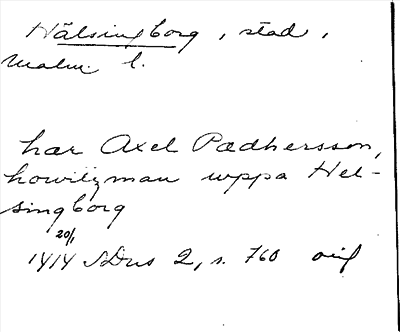 Hälsingborg, stad,
Malm. l.
har Axel Pædhersson,
howitzman uppa Hel-
singborg
20/1
1414 SDns 2, s. 760 avs